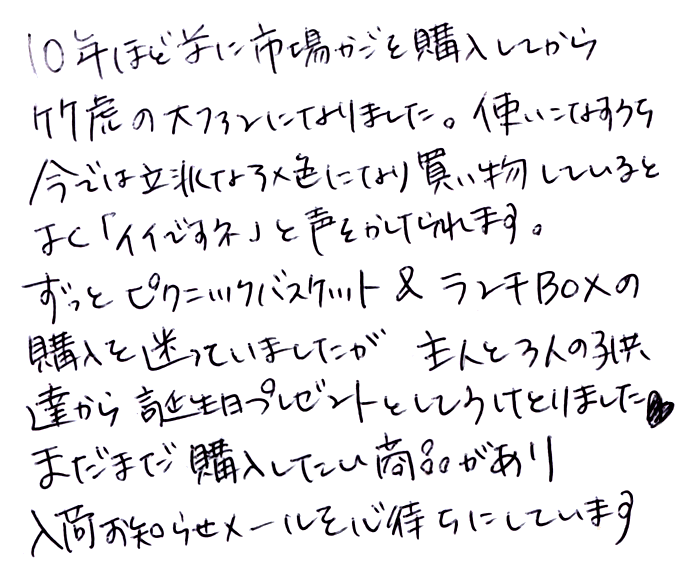 10年ほど前に市場かごを購入してから
竹虎の大ファンになりました。使いこなすうち
今では立派なアメ色になり買い物していると
よく「イイですネ」と声をかけられます。
ずっとピクニックバスケット & ランチBOXの
購入を迷っていましたが 主人と3人の子供
達から誕生日プレゼントとしてうけとりました
まだまだ購入したい商品があり
入荷お知らせメールを心待ちにしています